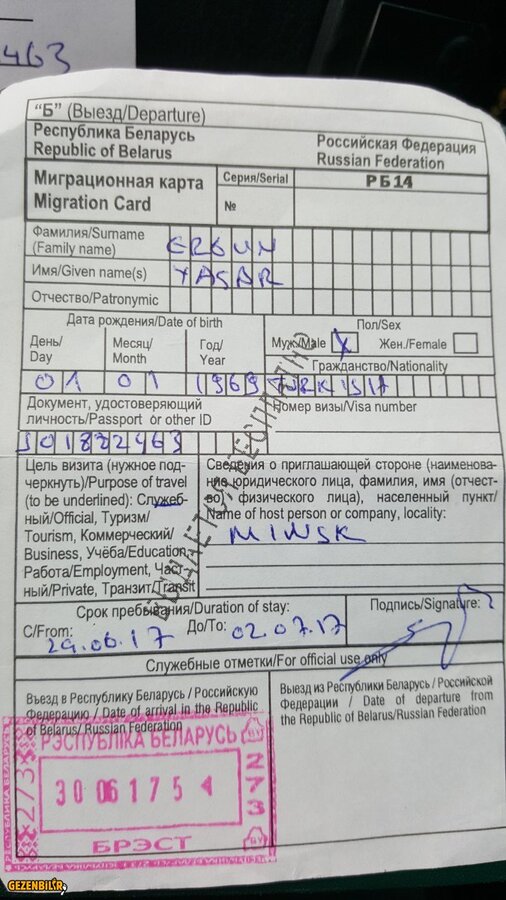 463
"Б" (Выезд/Departure)
Республика Беларусь
Republic of Belarus
Российская Федерация
Russian Federation
Миграционная карта
Migration Card
Серия/Serial
РБ14
№
Фамилия/Surname
(Family name)
ERGUN
Имя/Given name(s)
YASAR
Отчество/Patronymic
Дата рождения/Date of birth
Пол/Sex
День/
Day
Месяц/
Month
Год/
Year
Муж./Male X
Жен./Female
Гражданство/Nationality
01 01 1969 TURKISH
Документ, удостоверяющий
личность/Passport or other ID
Номер визы/Visa number
ВЫДАЕТСЯ БЕСПЛАТНО
Цель визита (нужное под-
черкнуть)/Purpose of travel
(to be underlined): Служеб-
ный/Official, Туризм/
Tourism, Коммерческий/
Business, Учёба/Education,
Работа/Employment, Част-
ный/Private, Транзит/Transit
Сведения о приглашающей стороне (наименова-
ние юридического лица, фамилия, имя (отчест-
во) физического лица), населенный пункт/
Name of host person or company, locality:
MINSK
Срок пребывания/Duration of stay:
С/From: 29.06.17 До/To: 02.07.17
Подпись/Signature:
Служебные отметки/For official use only
Въезд в Республику Беларусь / Российскую
Федерацию / Date of arrival in the Republic
of Belarus/ Russian Federation
Выезд из Республики Беларусь / Российской
Федерации / Date of departure from
the Republic of Belarus/Russian Federation
РЭСПУБЛІКА БЕЛАРУСЬ
30 06 17 5
273
БРЭСТ
GEZENBİLİR